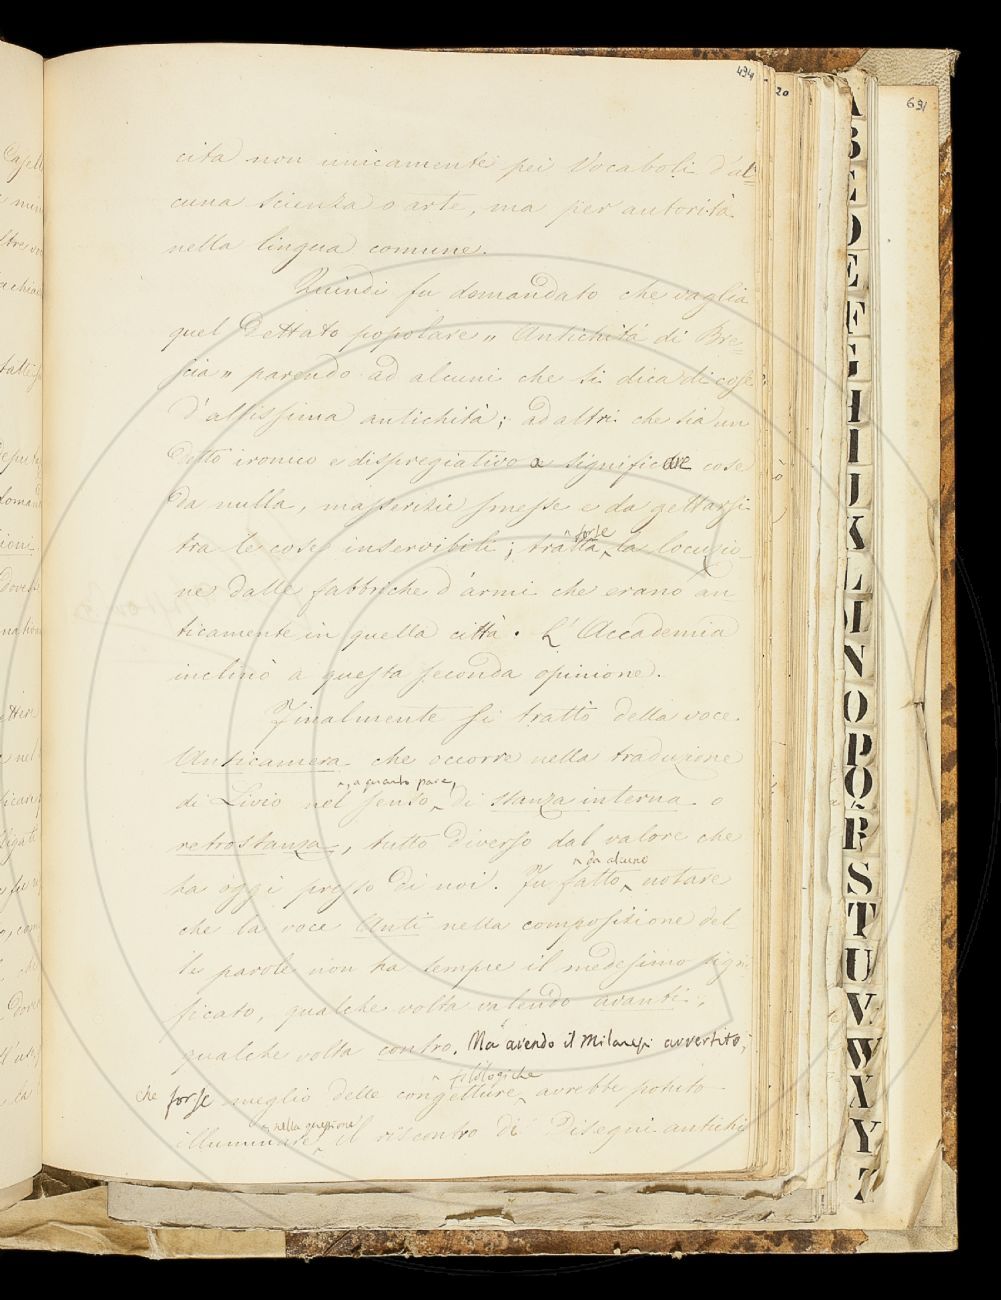 494
20
691
cita non unicamente pei Vocaboli d'al=
cuna scienza o arte, ma per autorità
nella lingua comune.
Quindi fu domandato che vaglia
quel Dettato popolare „ Antichità di Bre=
scia „ parendo ad alcuni che si dica di cose
d'altissima antichità; ad altri che sia un
Detto ironico e dispregiativo a significare cose
da nulla, masserizie smesse e da gettarsi
tra le cose inservibili; tratta forse la locuzio
ne dalle fabbriche d'armi che erano an
ticamente in quella città. L'Accademia
inclinò a questa seconda opinione.
Finalmente si trattò della voce
Anticamera che occorre nella traduzione
di Livio nel senso, a quanto pare, di stanza interna o
retrostanza, tutto diverso dal valore che
ha oggi presso di noi. Fu fatto da alcuno notare
che la voce Anti nella composizione del
le parole non ha sempre il medesimo signi
ficato, qualche volta valendo avanti;
qualche volta contro. Ma avendo il Milanesi avvertito,
che forse meglio delle congetture filologiche avrebbe potuto
illuminare nella questione il riscontro di Disegni antichi
A
B
C
D
E
F
G
H
I
J
K
L
M
N
O
P
Q
R
S
T
U
V
W
X
Y
Z